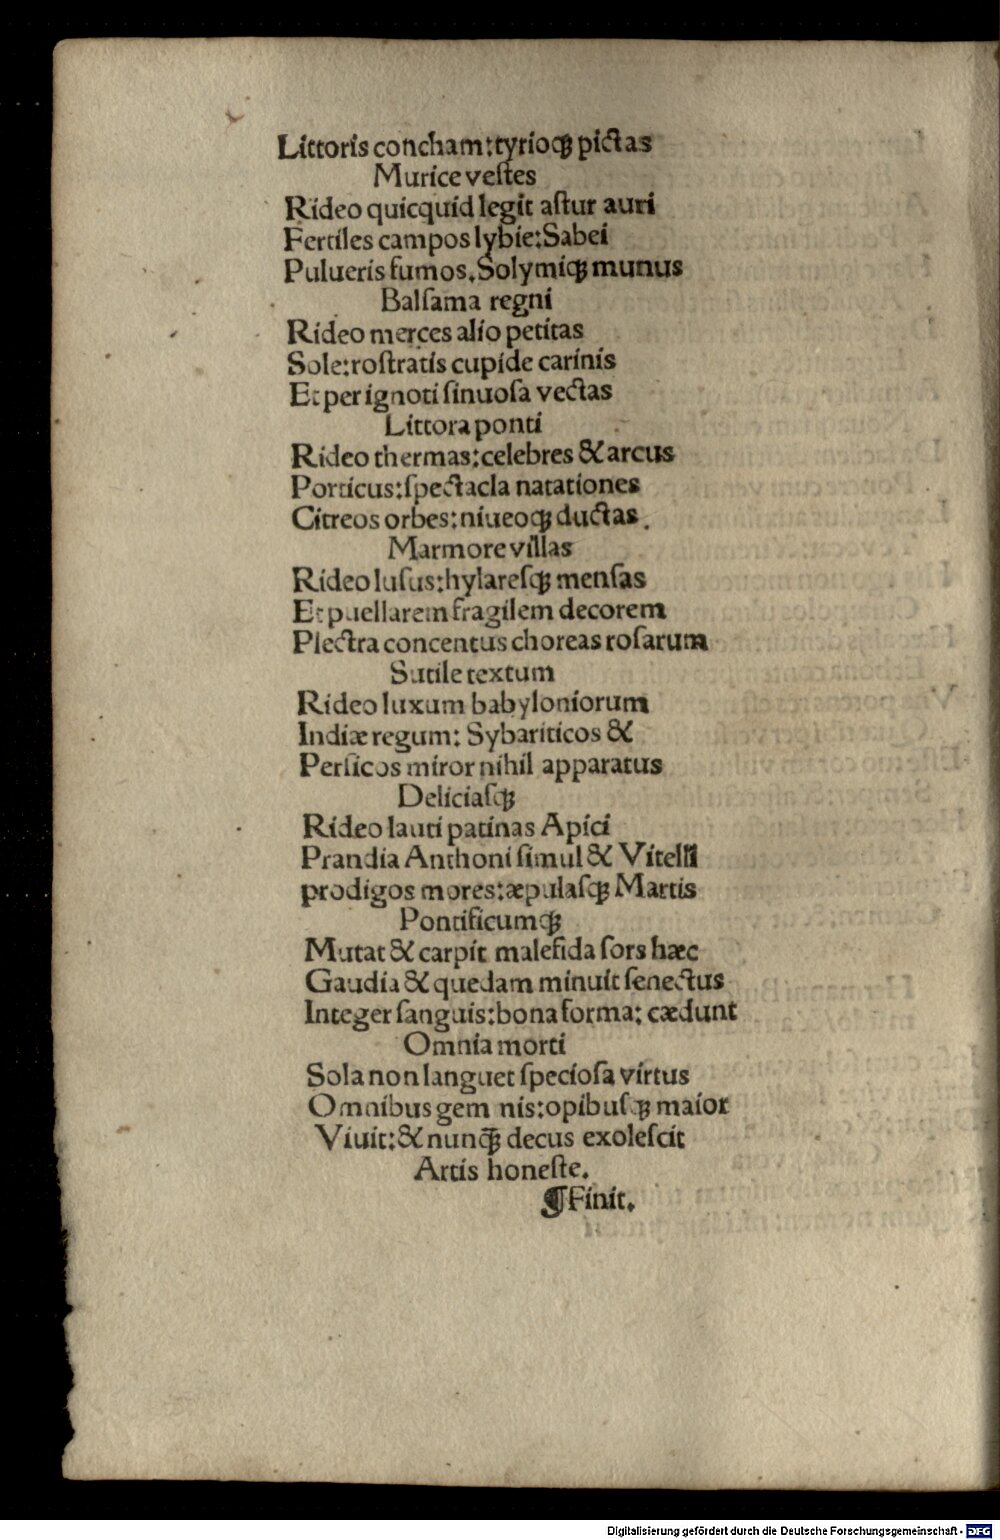 Littoris concham:tyrioqꝫ pictas
Murice veſtes
Rideo quicquid legit aſtur auri
Fertiles campos lybie:Sabei
Pulueris fumos.Solymiqꝫ munus
Balſama regni
Rideo merces alio petitas
Sole:roſtratis cupide carinis
Et per ignoti ſinuoſa vectas
Littora ponti
Rideo thermas:celebres & arcus
Porticus:ſpectacla natationes
Citreos orbes:niueoqꝫ ductas.
Marmore villas
Rideo luſus:hylareſqꝫ menſas
Et puellarem fragilem decorem
Plectra concentus choreas roſarum
Sutile textum
Rideo luxum babyloniorum
Indiæ regum: Sybariticos &
Perſicos miror nihil apparatus
Deliciaſqꝫ
Rideo lauti patinas Apici
Prandia Anthoni ſimul & Vitelli
prodigos mores:æpulaſqꝫ Martis
Pontificumqꝫ
Mutat & carpit malefida ſors hæc
Gaudia & quedam minuit ſenectus
Integer ſanguis:bona forma: cædunt
Omnia morti
Sola non languet ſpecioſa virtus
Omnibus gem nis:opibuſqꝫ maior
Viuit:& nunq̄ꝫ decus exoleſcit
Artis honeſte.
¶Finit.
Digitalisierung gefördert durch die Deutsche Forschungsgemeinschaft - DFG